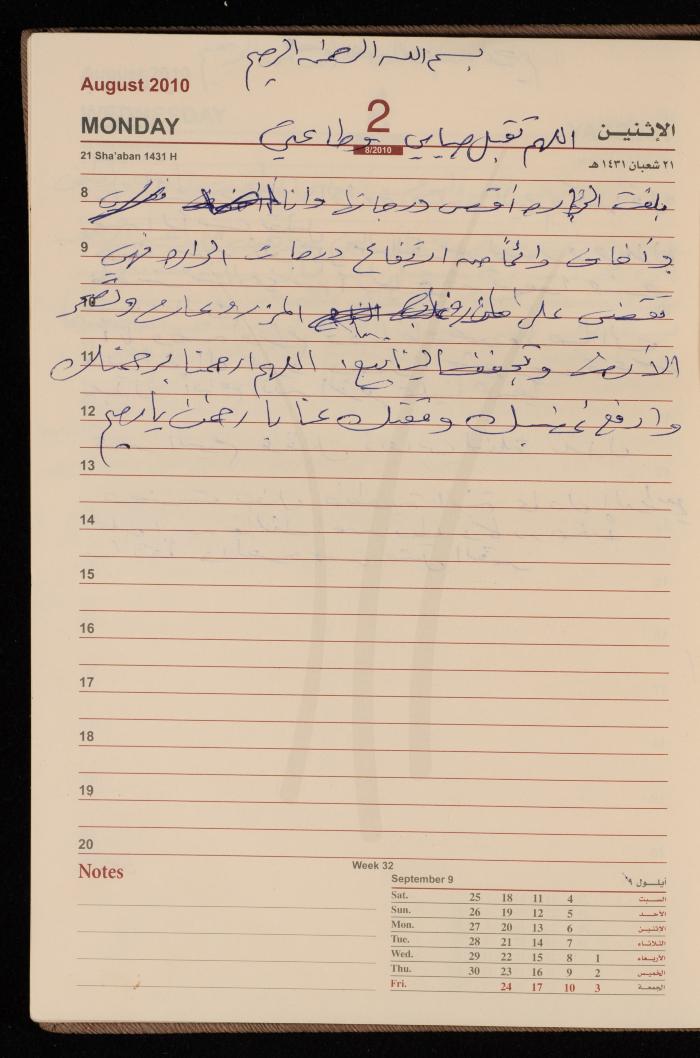 بسم الله الرحمن الرحيم
August 2010
2
8/2010
MONDAY
الإثنيـن
21 Sha'aban 1431 H
٢١ شعبان ١٤٣١ هـ
اللهم تقبل صيامي وطاعتي
8
بلغت الحراره أقصى درجاتها وانا
9
وأخاف دائماً من ارتفاع درجات الحراره فهي
10
تقضي على المزروعات
11
الأرض وتجفف الينابيع، اللهم ارحمنا برحمتك
12
وارفع غضبك ومقتك عنا يا رحمن يا رحيم
13
14
15
16
17
18
19
20
Notes
Week 32
September 9
أيلـــول ٩
Sat. 25 18 11 4 السبت
Sun. 26 19 12 5 الأحـد
Mon. 27 20 13 6 الإثنين
Tue. 28 21 14 7 الثلاثاء
Wed. 29 22 15 8 1 الأربعاء
Thu. 30 23 16 9 2 الخميس
Fri. 24 17 10 3 الجمعة